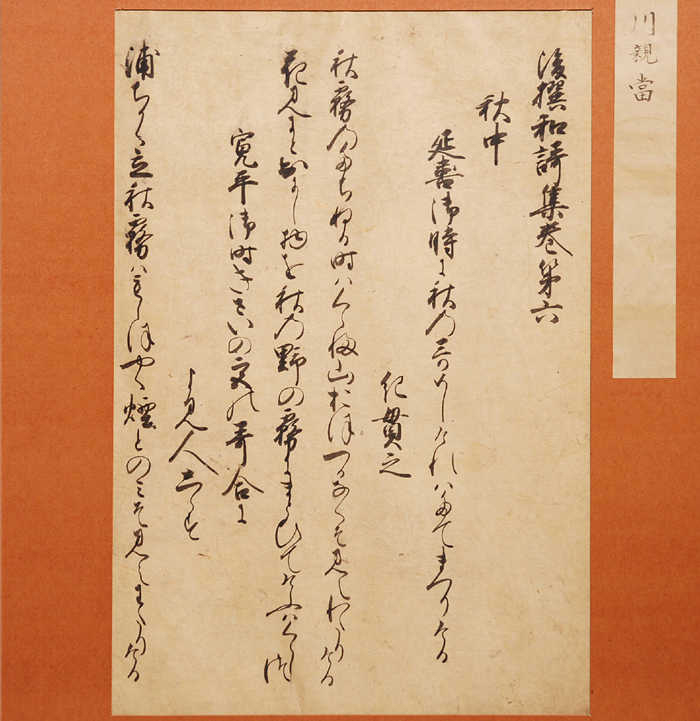 川親當
後撰和謌集巻第六
秋中
延喜御時に秋乃哥めしけれハたてまつりける
紀貫之
秋霧乃たちぬる時ハくらふ山おほつかなくそ見えわたりける
花見にと出にし物を秋乃野の霧にまよひてけふハくらしつ
寛平御時きさいの宮の哥合に
よ見人しらす
浦ちかく立秋霧ハもしほやく煙とのミそ見えわたりける